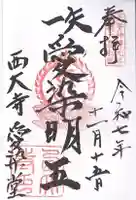 奉拝
令和七年
十一月十五日
愛染明王
西大寺 愛染堂